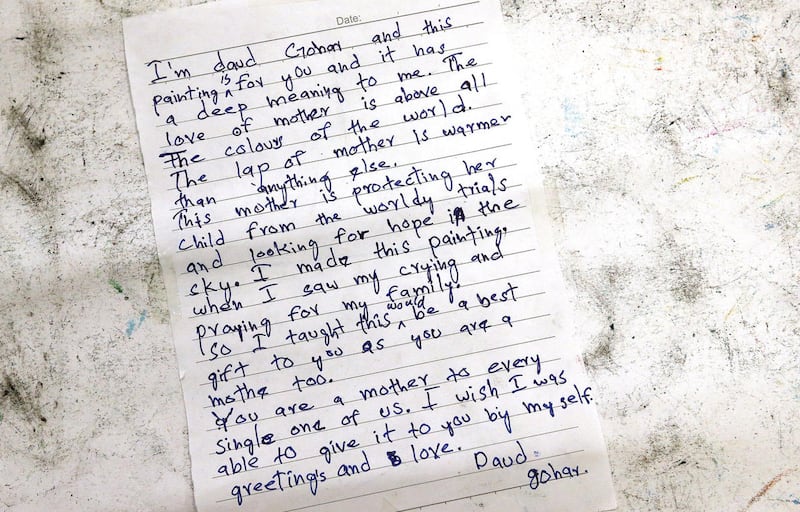 Date:
I'm daud Gohar and this
painting is for you and it has
a deep meaning to me. The
love of mother is above all
The colours of the world.
The lap of mother is warmer
than anything else.
This mother is protecting her
child from the worldy trials
and looking for hope in the
sky. I made this painting.
when I saw my crying and
praying for my family.
So I taught this would be a best
gift to you as you are a
mothe too.
You are a mother to every
single one of us. I wish I was
able to give it to you by my self.
greetings and love.
Daud
gohar.